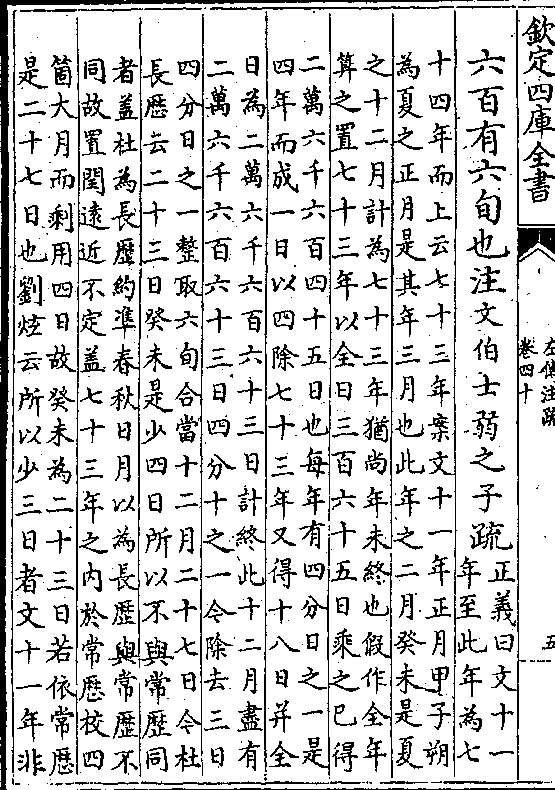 欽定四庫全書
左傳注疏
卷四十
五
六百有六旬也注文伯士弱之子疏正義曰文十一
年至此年為七
十四年而上云七十三年案文十一年正月甲子朔
為夏之正月是其年三月也此年之二月癸未是夏
之十二月計為七十三年猶尚年未終也假作全年
算之置七十三年以全日三百六十五日乘之已得
二萬六千六百四十五日也每年有四分日之一是
四年而成一日以四除七十三年又得十八日并全
日為二萬六千六百六十三日計終此十二月盡有
二萬六千六百六十三日四分十之一令除去三日
四分日之一整取六旬合當十二月二十七日令杜
長歷云二十三日癸未是少四日所以不與常歷同
者盖杜為長歷約準春秋日月以為長歷與常歷不
同故置閏遠近不定盖七十三年之內於常歷校四
箇大月而剩用四日故癸未為二十三日若依常歷
是二十七日也劉炫云所以少三日者文十一年非